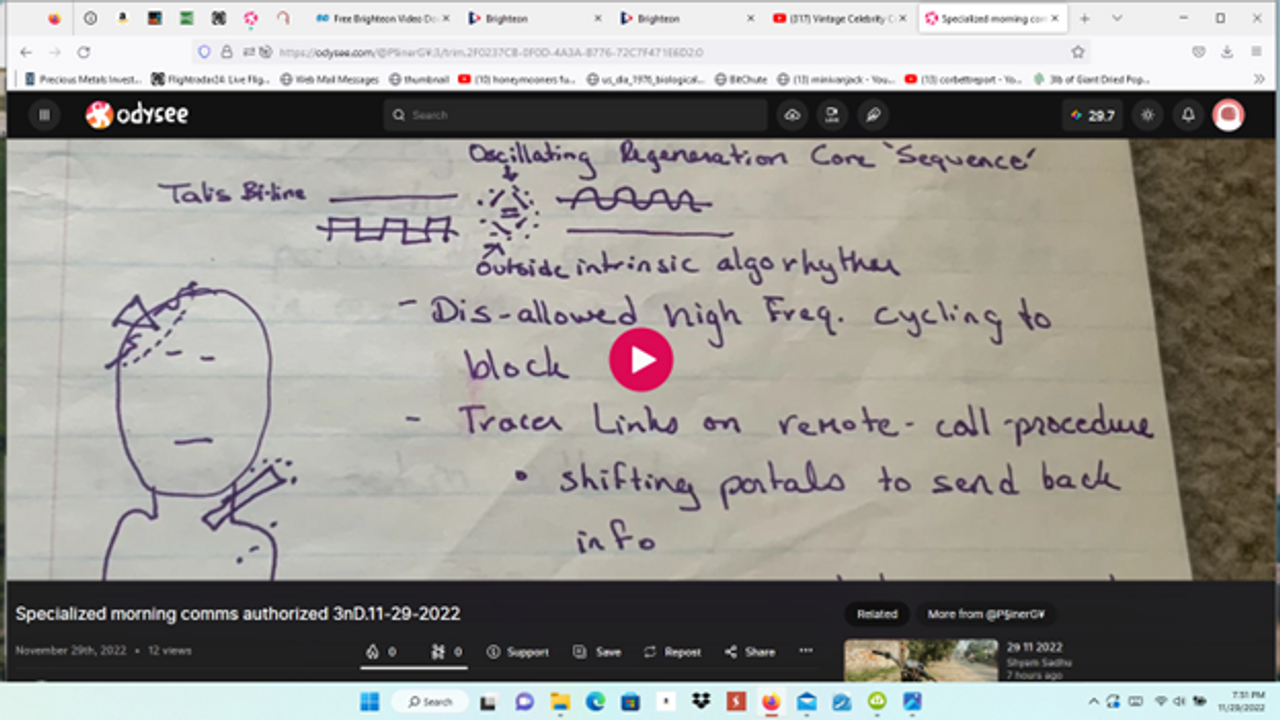 Free Brighteon Video Do
Brighteon
Brighteon
(317) Vintage Celebrity C
Specialized morning com
Precious Metals Invest...
Flightradar24: Live Flig...
Web Mail Messages
thumbnail
(10) honeymooners fu...
us_dia_1976_biological...
BitChute
(13) minivanjack - You...
(13) corbettreport - Yo...
3lb of Giant Dried Pop...
odysee
Search
LIVE
29.7
Oscillating Regeneration Core 'Sequence'
Talis Bi-line
outside intrinsic algorhythm
- Dis-allowed high Freq. cycling to
block
- Tracer Links on remote-call-procedure
• shifting portals to send back
info
Specialized morning comms authorized 3nD.11-29-2022
November 29th, 2022 • 12 views
0
0
Support
Save
Repost
Share
Related
More from @P§inerG¥
29 11 2022
Shyam Sadhu
7 hours ago
Search
7:31 PM
11/29/2022